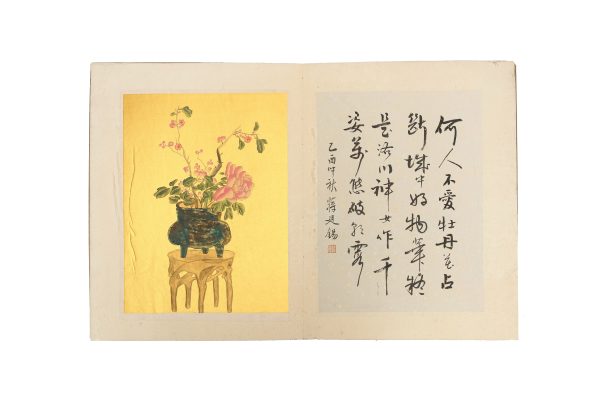 何人不愛牡丹花占
斷城中好物華疑
是洛川神女作千
姿萬態破朝霞
乙酉年秋 蔣廷錫